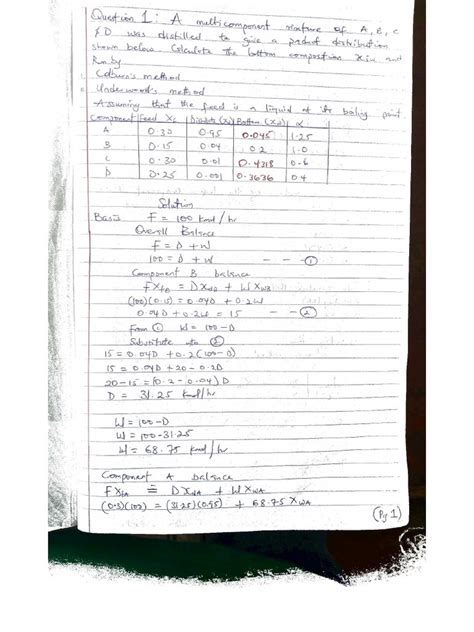 Question 1: A multicomponent mixture of A, B, C
& D was distilled to give a product distribution
shown below. Calculate the bottom composition Xiw and
Rm by
Colburn's method
Underwood's method
Assuming that the feed is a liquid at its boiling point.
Component Feed Xf Distillate (Xd) Bottom (Xw) α
A 0.30 0.95 0.045 1.25
B 0.15 0.04 0.2 1.0
C 0.30 0.01 0.4318 0.6
D 0.25 0.001 0.3636 0.4
Solution
Basis F = 100 kmol/hr
Overall Balance
F = D + W
100 = D + W - - - ①
Component B balance
F XFB = D XDB + W XWB
(100)(0.15) = 0.04D + 0.2W
0.04D + 0.2W = 15 - - - ②
From ① W = 100 - D
Substitute into ②
15 = 0.04D + 0.2(100 - D)
15 = 0.04D + 20 - 0.2D
20 - 15 = (0.2 - 0.04)D
D = 31.25 kmol/hr
W = 100 - D
W = 100 - 31.25
W = 68.75 kmol/hr
Component A balance
F XFA = D XDA + W XWA
(0.3)(100) = (31.25)(0.95) + 68.75 XWA
(Pg 1)